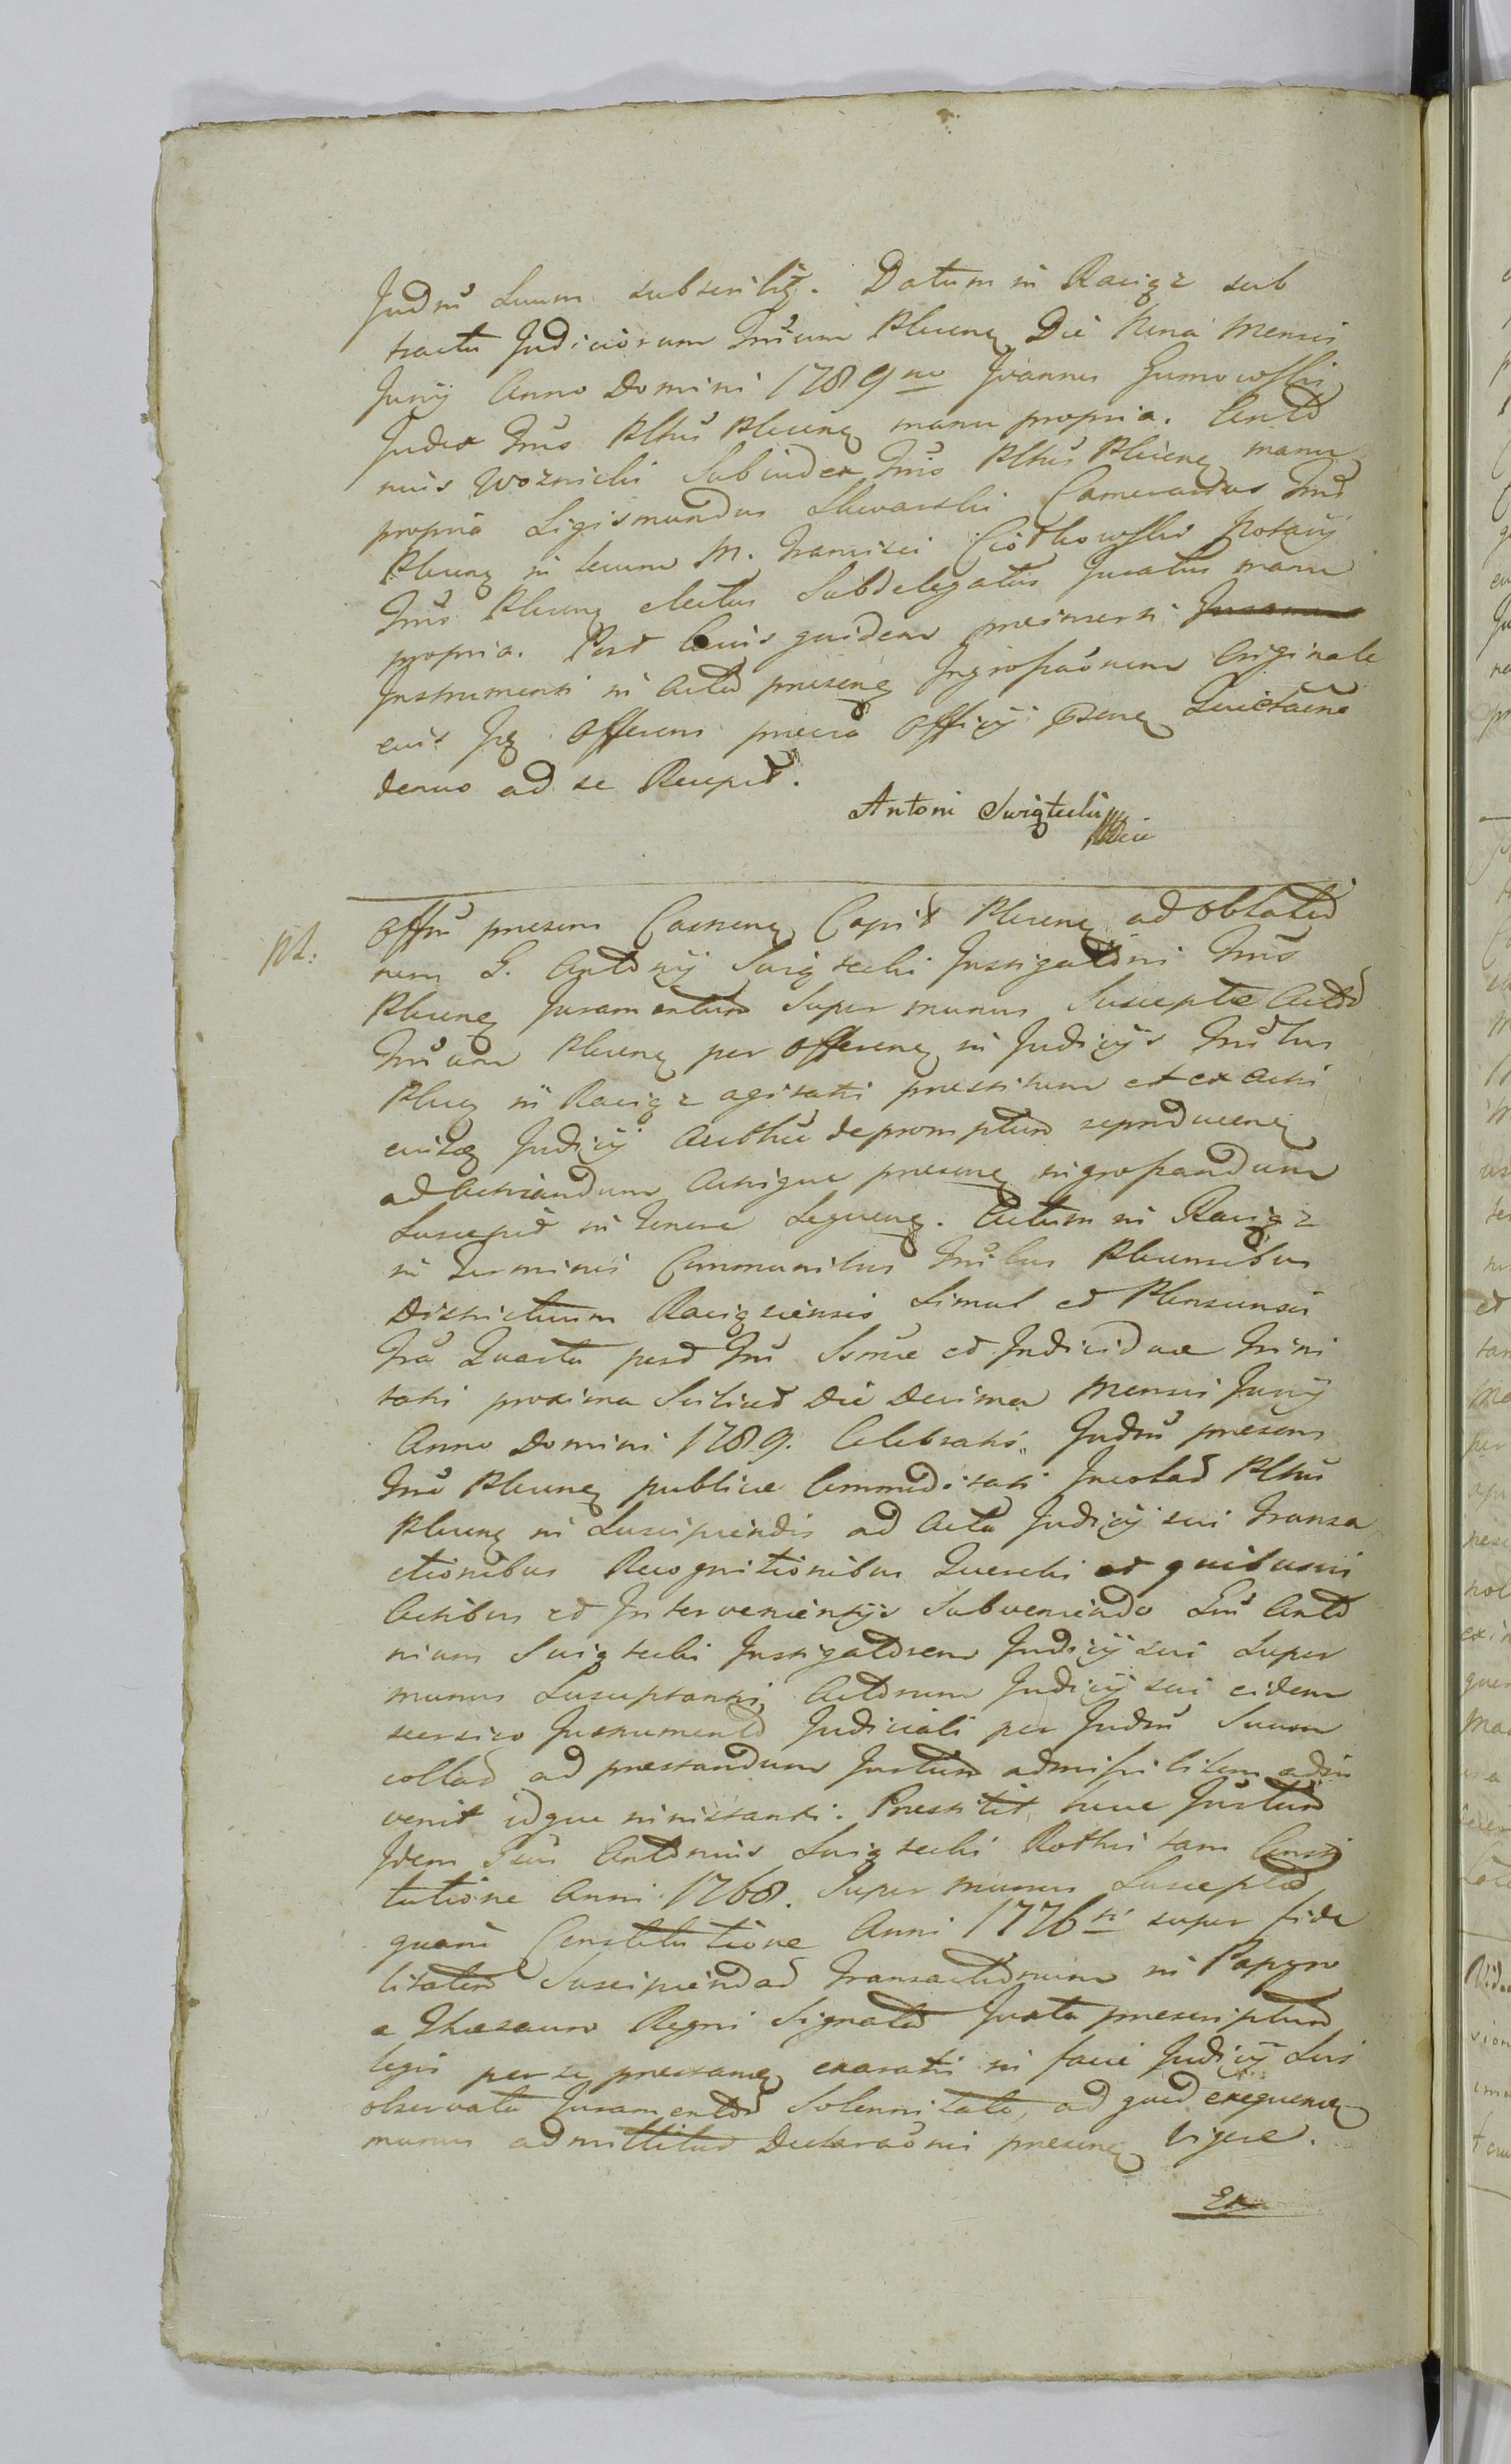 Judiu Suum subscribi. Datum in Raciąz sub
tractu Judiciorum Trrium Plocen Die Nona Mensis
Junÿ Anno Domini 1789no Joannes Gumowski
Judex Trris Pltus Plocen manu propria. Anto
nius Woznicki Subiudex Trris Pltus Plocen manu
propria Sigismundus Skwarski Camerarius Trris
Plocen in locum M. Francisci Ciołkowski Notarÿ
Trris Plocen electus Subdelegatus Juratus manu
propria. Post cuius quidem preinserti
Instrumenti in Acta presen Ingrossaonem Originale
eius Iz Offerens previa Officÿ psen Quietaone
denuo ad se Recepit.
Antoni Swięcicki
Offiu presens Castren Capit Plocen ad Oblatio
nem G. Antonÿ Swięcicki Instigatoris Trris
Plocen Juramentum Super munus Suscepta Actor
Trrium Plocen per Offeren in Judicÿs Trribus
Plocen in Raciąz agitatis prestitum et ex Actis
eiusq Judicÿ Authu depromptum reproducen
ad Acticandum Actisque presen ingrossandum
Suscepit in Tenore Sequen. Actum in Raciąz
in Terminis Communibus Trribus Plocensibus
Districtuum Raciązensis Simul et Plonscensis
Fria Quarta post Festu Ssmae et Individuae Trini
tatis proxima Scilicet Die Decima Mensis Junÿ
Anno Domini 1789. Celebratis. Judiu presens
Trre Plocen publicae Commoditati Incolar Pltus
Plocen in Suscipiendis ad Acta Judicÿ sui Transa
ctionibus Recognitionibus Querelis et quibusvis
Actibus et Intervenientÿs Subveniendo Gsu Anto
nium Swięcicki Instigatorem Judicÿ sui Super
munus Susceptantis Actorum Judicÿ sui eidem
Instrumento Judiciali per Judiu Suum
collat ad prestandum Jurtum
venit idque instanti. Prestitit hocce Jurtum
Idem Gsus Antonius Swięcicki Rotha tam Consti
tutione Anni 1768. Super munus Susceptae
quam Constitutione Anni 1776ti super fide
litatem Suscipiendar Transactionum in Papyro
a Thesauro Regni Signato Juxta prescriptum
legis per se prestan exaratis in facie Judicÿ Sui
observata Juramentor Solennitate, ad quod exequen
munus admittitur Decretaonis presen Vigore.
Ex